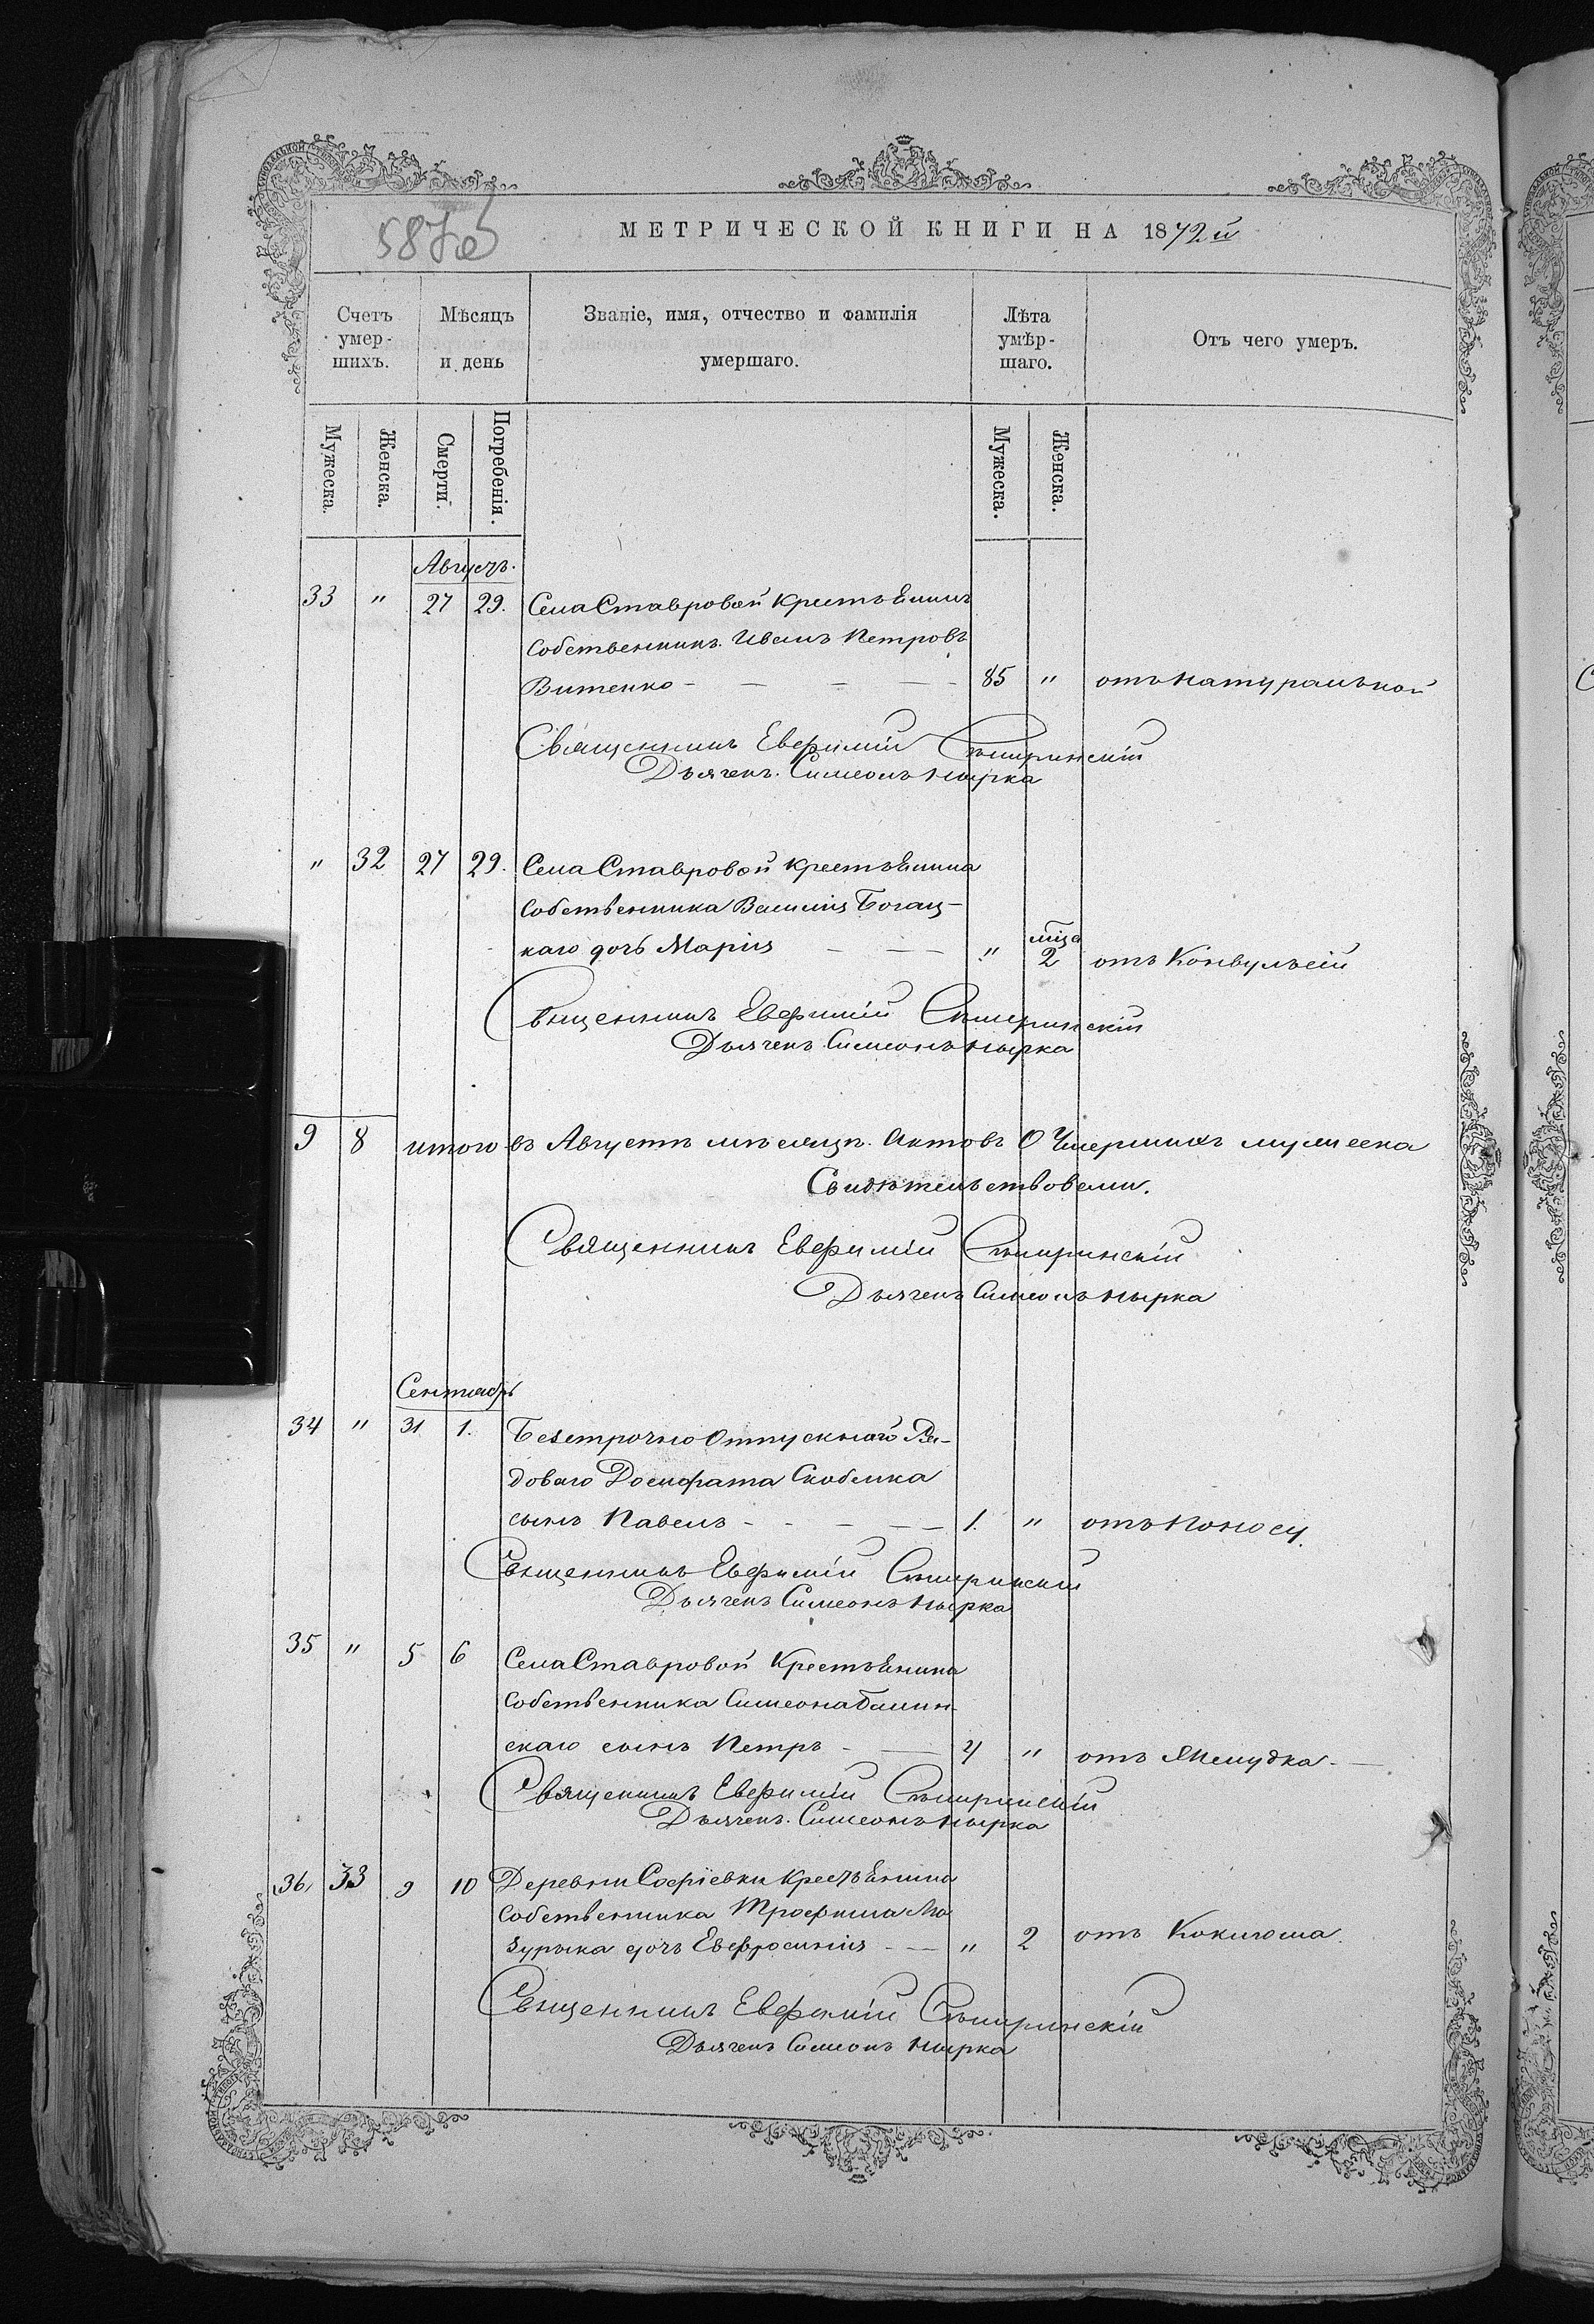 587об
МЕТРИЧЕСКОЙ КНИГИ НА 1872й
Счетъ умер-шихъ.
Мѣсяцъ и день
Званіе, имя, отчество и фамилія умершаго.
Лѣта умѣр-шаго.
Отъ чего умеръ.
Мужеска. Женска. Смерти. Погребенія. Мужеска. Женска.
Августъ.
33 " 27 29. Села Ставровой крестьянинъ
собственникъ Иванъ Петровъ
Витенко 85 " отъ натуральной
Священникъ Евфимій
Дьячекъ Симеонъ Нырка
" 32 27 29. Села Ставровой крестьянина
собственника Василія Богац-
каго дочь Марія " мца 2 отъ Конвульсіи
Священникъ Евфимій
Дьячекъ Симеонъ Нырка
9 8 итого въ Августѣ мѣсяцѣ. Актовъ О Умершихъ мужеска
Свидѣтельствовали.
Священникъ Евфимій
Дьячекъ Симеонъ Нырка
Сентябрь
34 " 31 1. Безсрочно Отпускнаго Ря-
доваго Доснфата Скобелка
сынъ Павелъ 1. " отъ поносу.
Священникъ Евфимій
Дьячекъ Симеонъ Нырка
35 " 5 6 Села Ставровой Крестьянина
собственника Симеона Балин-
скаго сынъ Петръ 4 " отъ
Священникъ Евфимій
Дьячекъ Симеонъ Нырка
36, 33 9 10 Деревни Софіевки Крестьянина
собственника Трофима Ма
зурыка дочь Евфросинія " 2 отъ Коклюша.
Священникъ Евфимій
Дьячекъ Симеонъ Нырка